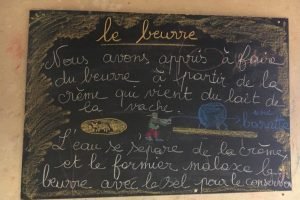 le beurre
Nous avons appris à faire
du beurre à partir de la
crème qui vient du lait de
la vache.
une
baratte
L'eau se sépare de la crème
et le fermier malaxe le
beurre avec le sel pour le conserver